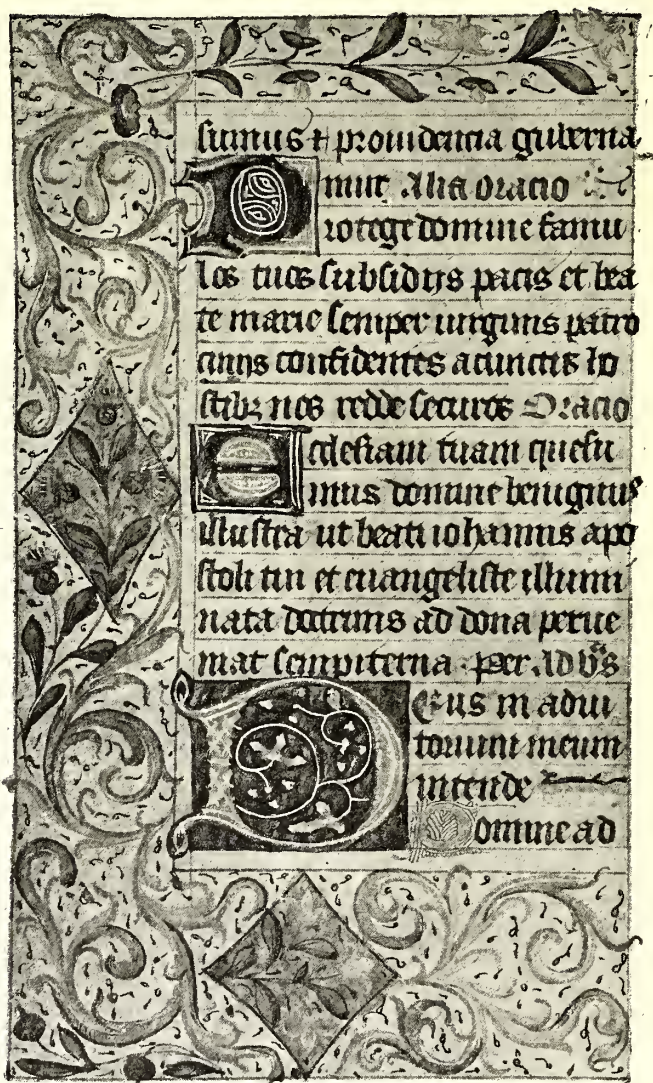 sumus ⁊ prouidencia guberna
mur. Alia oracio
Protege domine famu
los tuos subsidiis pacis et bea
te marie semper uirginis patro
ciniis confidentes acunctis ho
stibꝫ nos redde securos Oracio
Ecclesiam tuam quesu
mus domine benignus
illustra ut beati iohannis apo
stoli tui et euangeliste illumi
nata doctrinis ad dona perue
niat sempiterna. Per. Ad
Deus in adiu
torium meum
intende
Domine ad